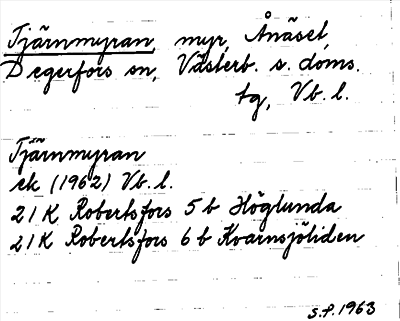 Tjärnmyran, myr, Ånäset,
Degerfors sn, Västerb. s. doms.
tg, Vb. l.
Tjärnmyran
ek (1962) Vb. l.
21K Robertsfors 5 b Höglunda
21K Robertsfors 6 b Kvarnsjöliden
S.P. 1963